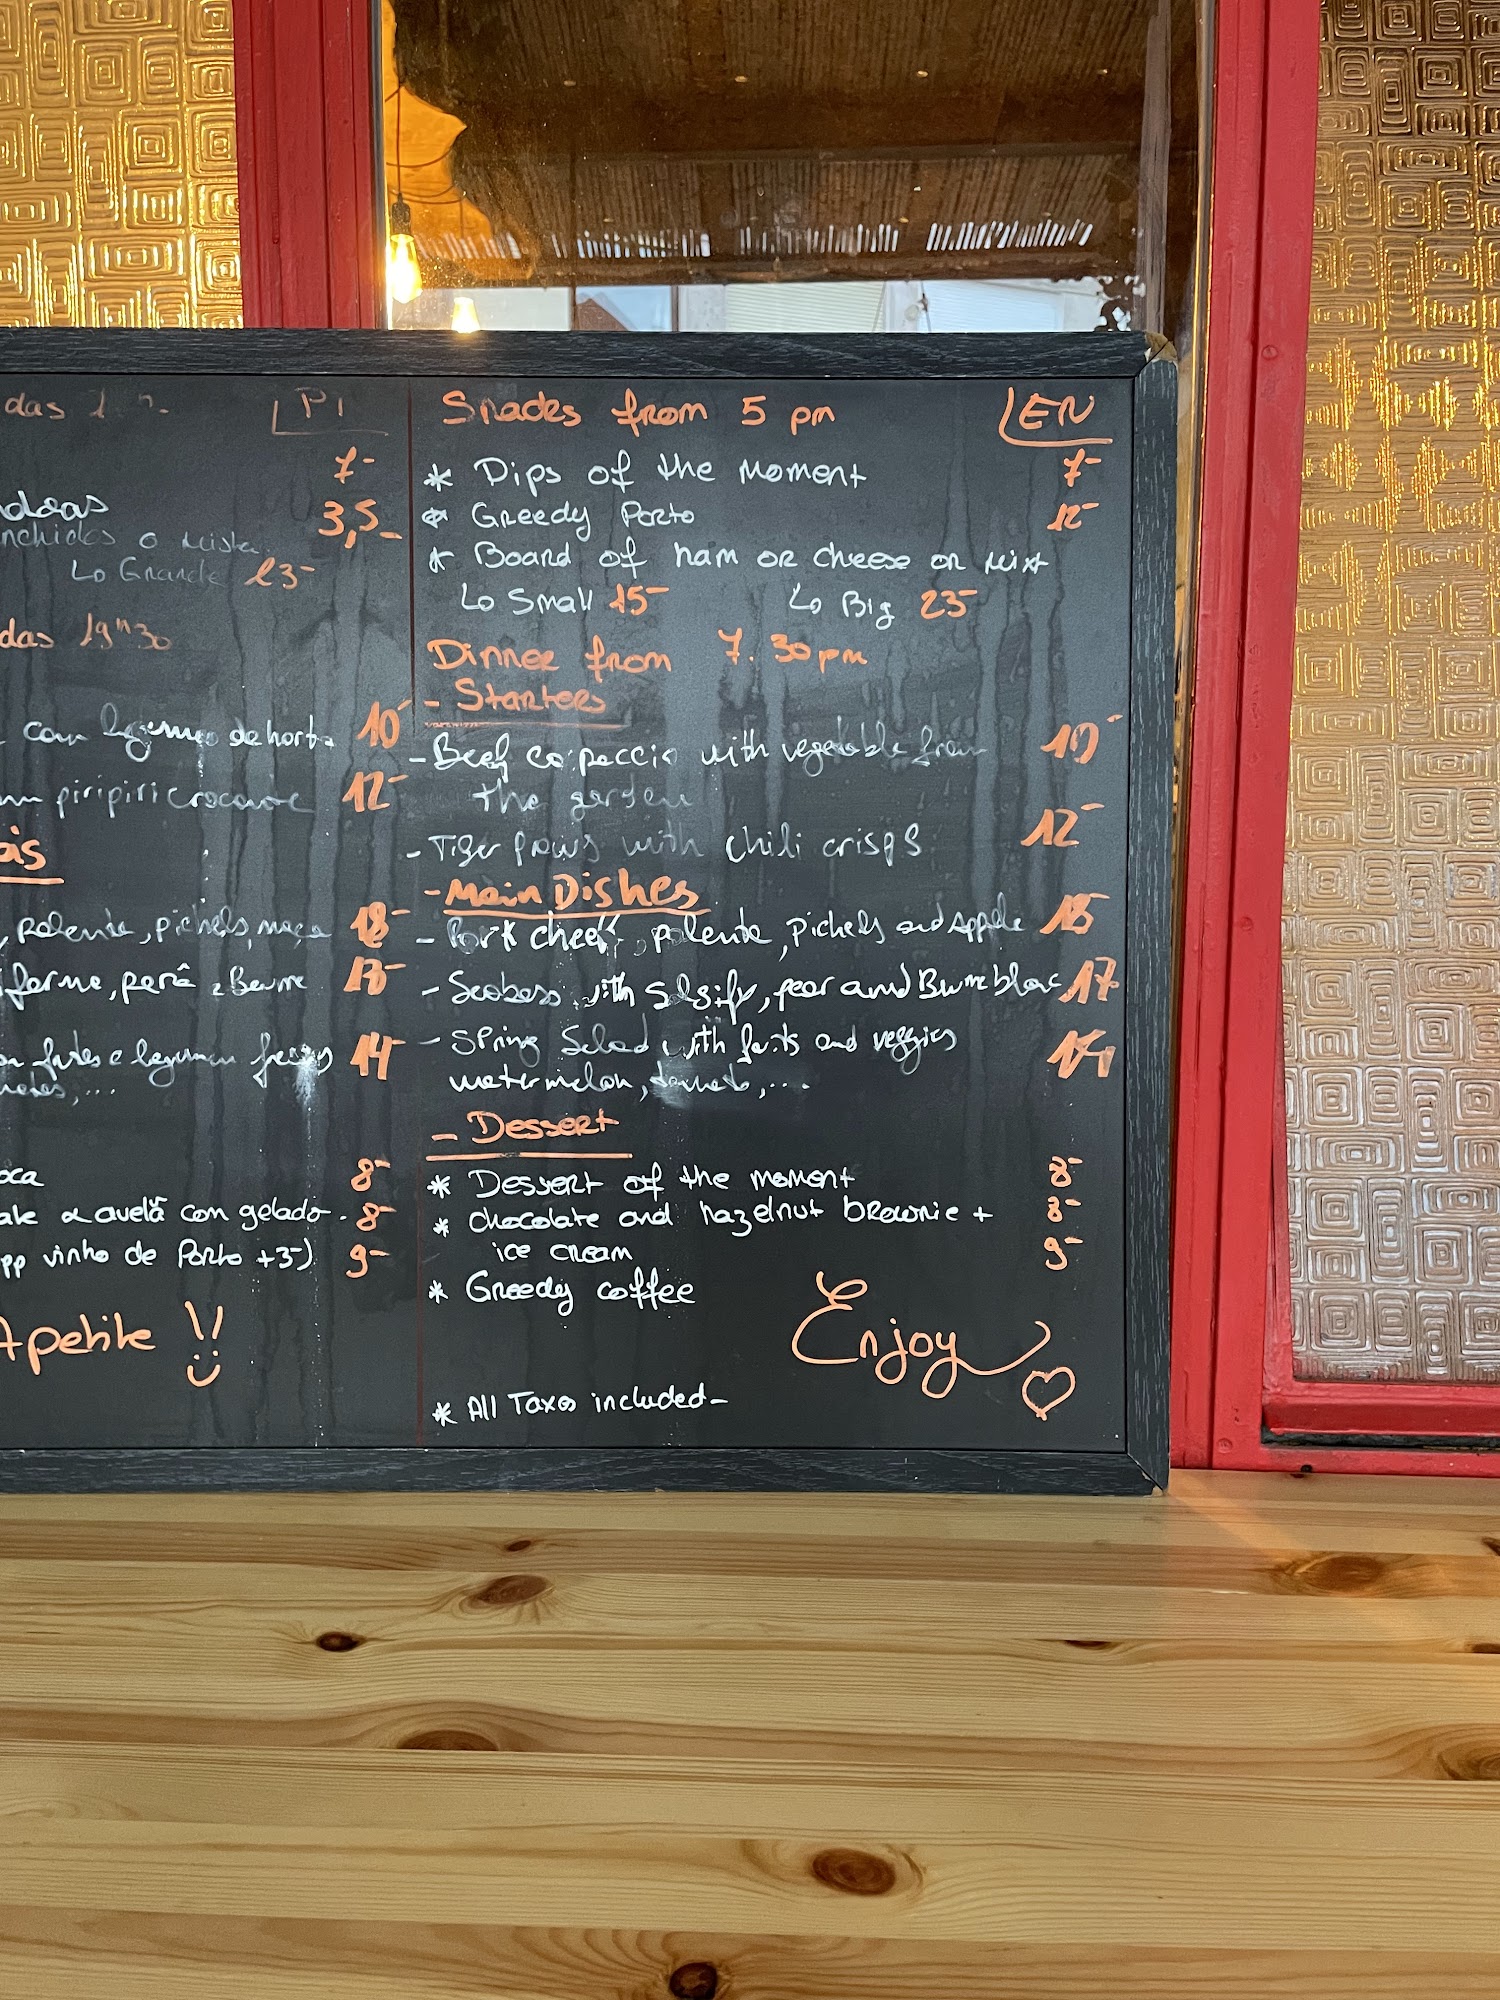 das
PT
7-
3,5-
o Mista
Lo Grande 23-
das 19h30
com legumes da horta 10-
piripiri crocante 12-
ais
, polenta, pickels, maça 18-
, pera e Beurre
legumes 14
,...
8-
avelã com gelado. 8-
vinho de Porto +3-) 9-
Apetite !!
Snacks from 5 pm
EN
* Dips of the moment 7-
* Greedy Porto 12-
* Board of ham or cheese or Mixt
Lo Small 15- Lo Big 23-
Dinner from 7.30pm
- Starters
- Beef carpaccio with vegetable from 10-
the garden
- Tiger prawns with chili crisps 12-
- Main Dishes
- Pork cheek, polenta, pickels and Apple 18-
- Seabass with Salsify, pear and Burre blanc 17-
- Spring Salad with fruits and veggies 14
watermelon, tomato,...
- Dessert
* Dessert of the moment 8-
* chocolate and hazelnut brownie + 8-
ice cream 9-
* Greedy coffee
Enjoy
* All Taxes included-